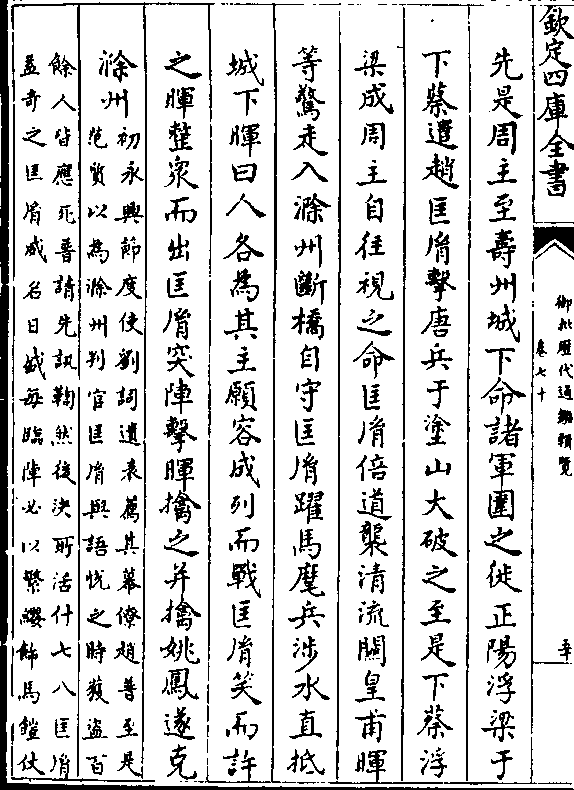 欽定四庫全書
御批歷代通鑑輯覽
卷七十
先是周主至壽州城下命諸軍圍之徙正陽浮梁于
下蔡遣趙匡胤擊唐兵于塗山大破之至是下蔡浮
梁成周主自往視之命匡胤倍道襲清流關皇甫暉
等驚走入滁州斷橋自守匡胤躍馬麾兵涉水直抵
城下暉曰人各為其主願容成列而戰匡胤笑而許
之暉整衆而出匡胤突陣擊暉擒之并擒姚鳳遂克
滁州
初永興節度使劉詞遺表薦其幕僚趙普至是
范質以為滁州判官匡胤與語悅之時獲盜百
餘人皆應死普請先訊鞫然後決所活什七八匡胤
益奇之匡胤威名日盛每臨陣必以繁纓飾馬鎧仗